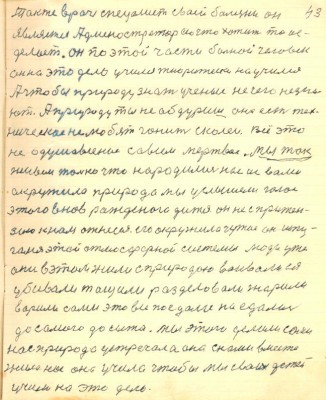 43
Также врач специалист своей болезни он
является Администратор его что хотит то де-
делает. он по этой части больной человек
он на это дело учился теоретеки научился
А чтобы природу знат ученые нечего незна-
ют. А природу ты не абдуриш она ест тех-
ническое не любят гонит скорей. Ей это
не одушевленое савсем мертвое. Мы так
живем толко что народилис нас ис вами
окружила природа мы услышили голос
этого внов рожденого дитя он непритен-
зию к нам отнеся его окружила чутая он испу-
гался этой атмосферной системы люди уже
они в этом жили с природою воевалися
убивали тащили разделовали жарили
варили сами это все поедали наедалис
до самого досыта. Мы этого делали сами
нас природа устречала она с нами вместе
жила нас она учила чтобы мы своих детей
учили на это дело.